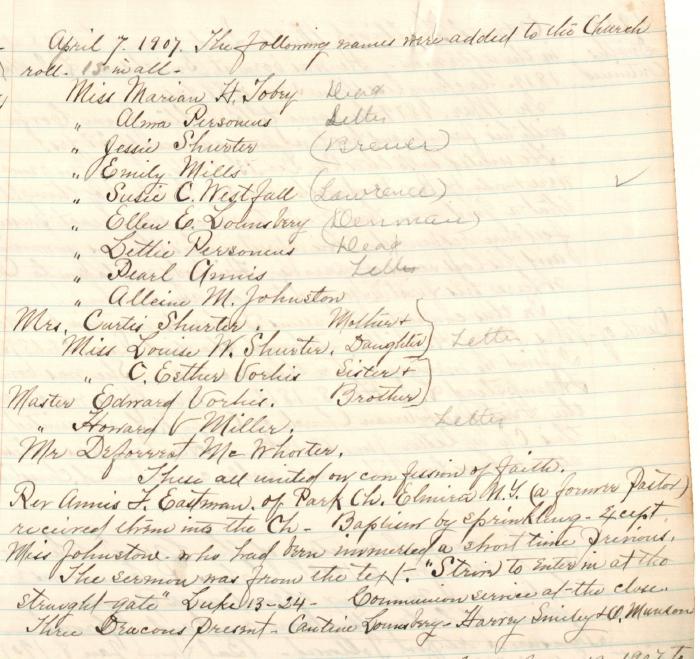 April 7. 1907. The following names were added to the Church
roll. 15 in all -
Miss Marian H. Tobey Dead
" Alma Personeus Letter
" Jessie Shurter (Brewer)
" Emily Mills
" Susie C. Westfall (Lawrence)
" Ellen E. Lounsbery (Denman)
" Lettie Personeus Dead
" Pearl Annis Letter
" Alleine M. Johnston
Mrs. Curtis Shurter. Mother &
Miss Louise W. Shurter. Daughter Letter
" C. Esther Vorhis Sister &
Master Edward Vorhis. Brother
" Howard V Miller. Letter
Mr Deforrest Mc Whorter.
These all united on confession of faith.
Rev Annis F. Eastman of Park Ch. Elmira N.Y. (a former Pastor)
received them into the Ch - Baptism by sprinkling - Except
Miss Johnston - who had been immersed a short time previous.
The sermon was from the text - "Strive to enter in at the
straight gate" Luke 13-24 - Communion service at the close.
Three Deacons Present - Cantine Lounsbery - Harvey Smiley & O. Munson